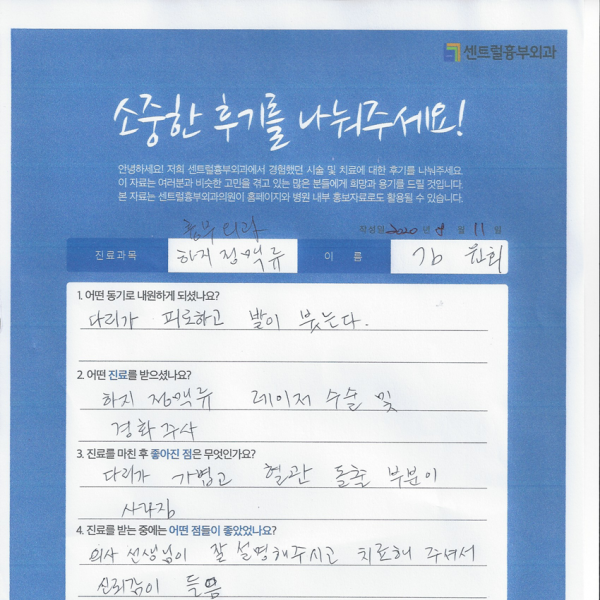 센트럴흉부외과
소중한 후기를 나눠주세요!
안녕하세요! 저희 센트럴흉부외과에서 경험했던 시술 및 치료에 대한 후기를 나눠주세요.
이 자료는 여러분과 비슷한 고민을 겪고 있는 많은 분들에게 희망과 용기를 드릴 것입니다.
본 자료는 센트럴흉부외과의원이 홈페이지와 병원 내부 홍보자료로도 활용될 수 있습니다.
흉부외과
작성일 2020 년 8 월 11 일
진료과목 하지정맥류 이 름 김 원희
1. 어떤 동기로 내원하게 되셨나요?
다리가 피로하고 발이 붓는다.
2. 어떤 진료를 받으셨나요?
하지 정맥류 레이저 수술 및
경화주사
3. 진료를 마친 후 좋아진 점은 무엇인가요?
다리가 가볍고 혈관 돌출 부분이
사라짐
4. 진료를 받는 중에는 어떤 점들이 좋았었나요?
의사 선생님이 잘 설명해주시고 치료해 주셔서
신뢰감이 들음